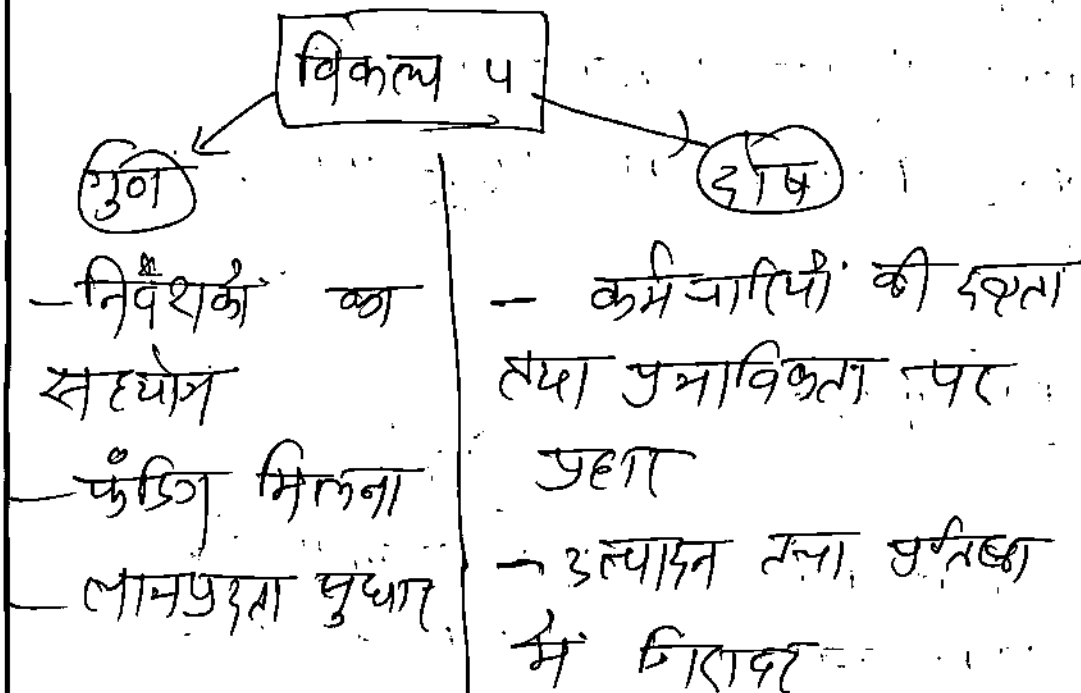 विकल्प 4
गुण
- निवेशकों का
सहयोग
- फंडिंग मिलना
- लाभप्रदता सुधार
दोष
- कर्मचारियों की दक्षता
तथा प्रभाविकता पर
प्रहार
- उत्पादन तथा प्रतिष्ठा
में गिरावट